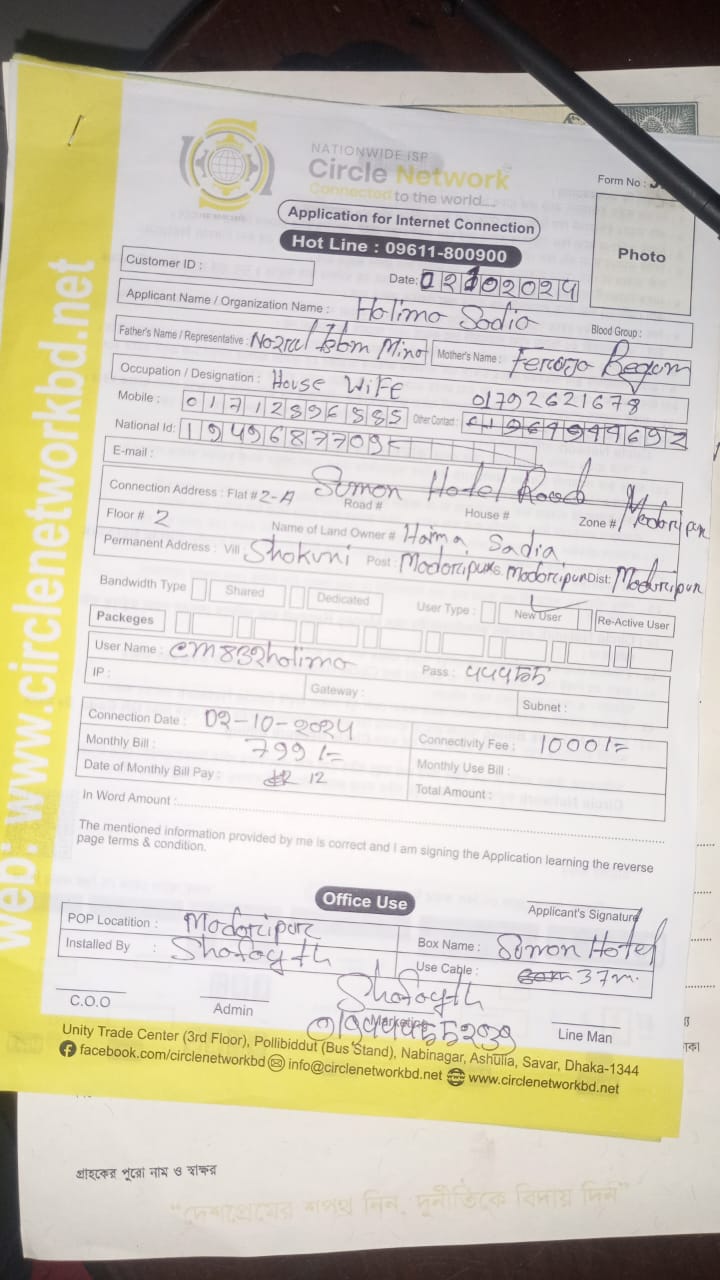 web: www.circlenetworkbd.net
NATIONWIDE ISP
Circle Network
Connected to the world....
Form No :
Application for Internet Connection
Hot Line : 09611-800900
Photo
Customer ID :
Date: 02102024
Applicant Name / Organization Name : Holimo Sodio
Blood Group :
Father's Name / Representative : Mother's Name : Begum
Occupation / Designation : House Wife 01792621678
Mobile : 01712896885 Other Contact :
National Id: 1949687709
E-mail :
Connection Address : Flat # 2-A Road # House # Zone #
Sumon Hotel Road
Floor # 2 Name of Land Owner # Sadia
Permanent Address : Vill Shokuni Post : Dist:
Bandwidth Type Shared Dedicated User Type : New User Re-Active User
Packeges
User Name : cm832holimo Pass : 44455
IP : Gateway : Subnet :
Connection Date : 02-10-2024 Connectivity Fee : 1000/=
Monthly Bill : 799/= Monthly Use Bill :
Date of Monthly Bill Pay : 12 Total Amount :
In Word Amount :
The mentioned information provided by me is correct and I am signing the Application learning the reverse
page terms & condition.
Office Use
Applicant's Signature
POP Locatition : Modoripur Box Name : Sumon Hotel
Installed By : Shofayth Use Cable : 37m.
Shofayth
C.O.O Admin Marketing Line Man
Unity Trade Center (3rd Floor), Pollibiddut (Bus Stand), Nabinagar, Ashulia, Savar, Dhaka-1344
facebook.com/circlenetworkbd info@circlenetworkbd.net www.circlenetworkbd.net
গ্রাহকের পুরো নাম ও স্বাক্ষর
“দেশপ্রেমের শপথ নিন, দুর্নীতিকে বিদায় দিন”